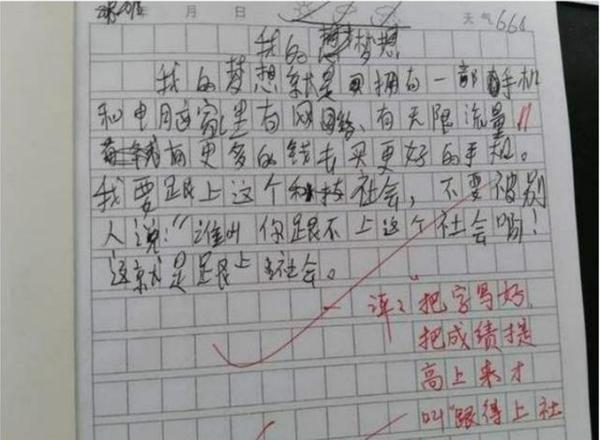 年 月 日 天气666
我的梦想
我的梦想就是拥有一部手机
和电脑家里有网络、有无限流量!!
有更多的钱去买更好的手机。
我要跟上这个科技社会,不要被别
人说:"谁叫你跟不上这个社会哟!
这就是跟上社会。
评:把字写好,
把成绩提
高上来才
叫"跟得上社